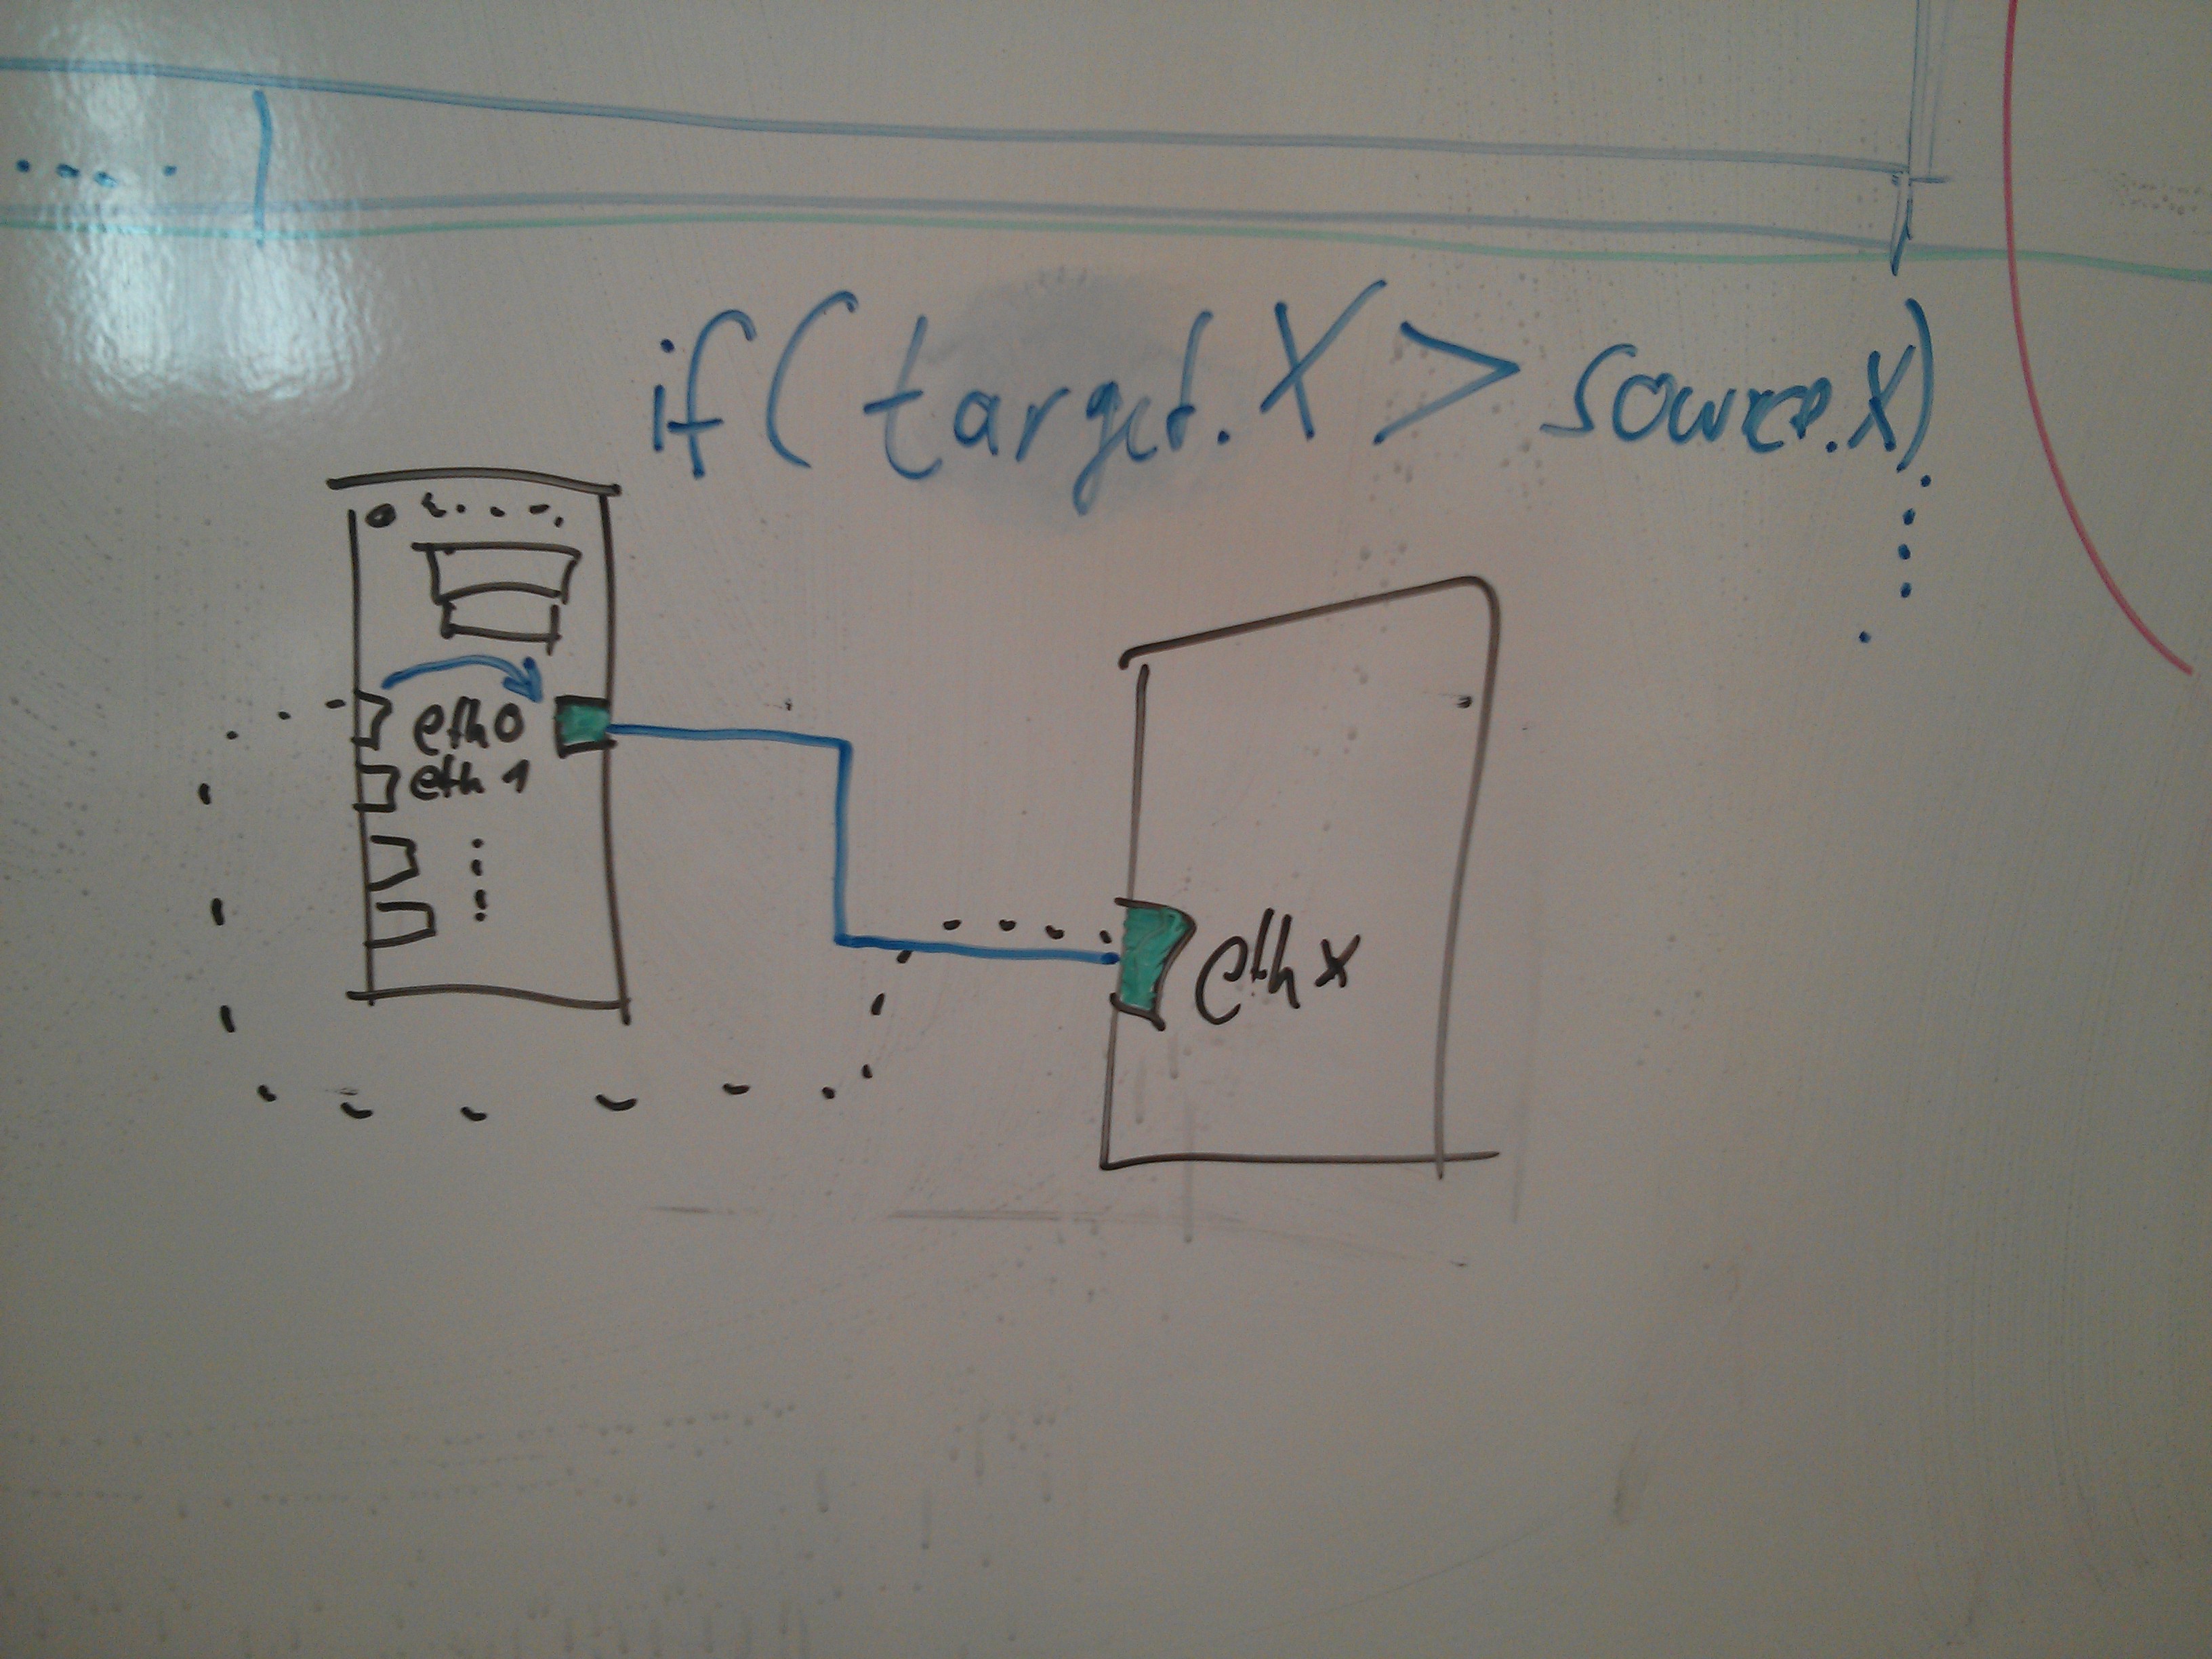 if (target.X > source.X)
eth0
eth 1
eth x